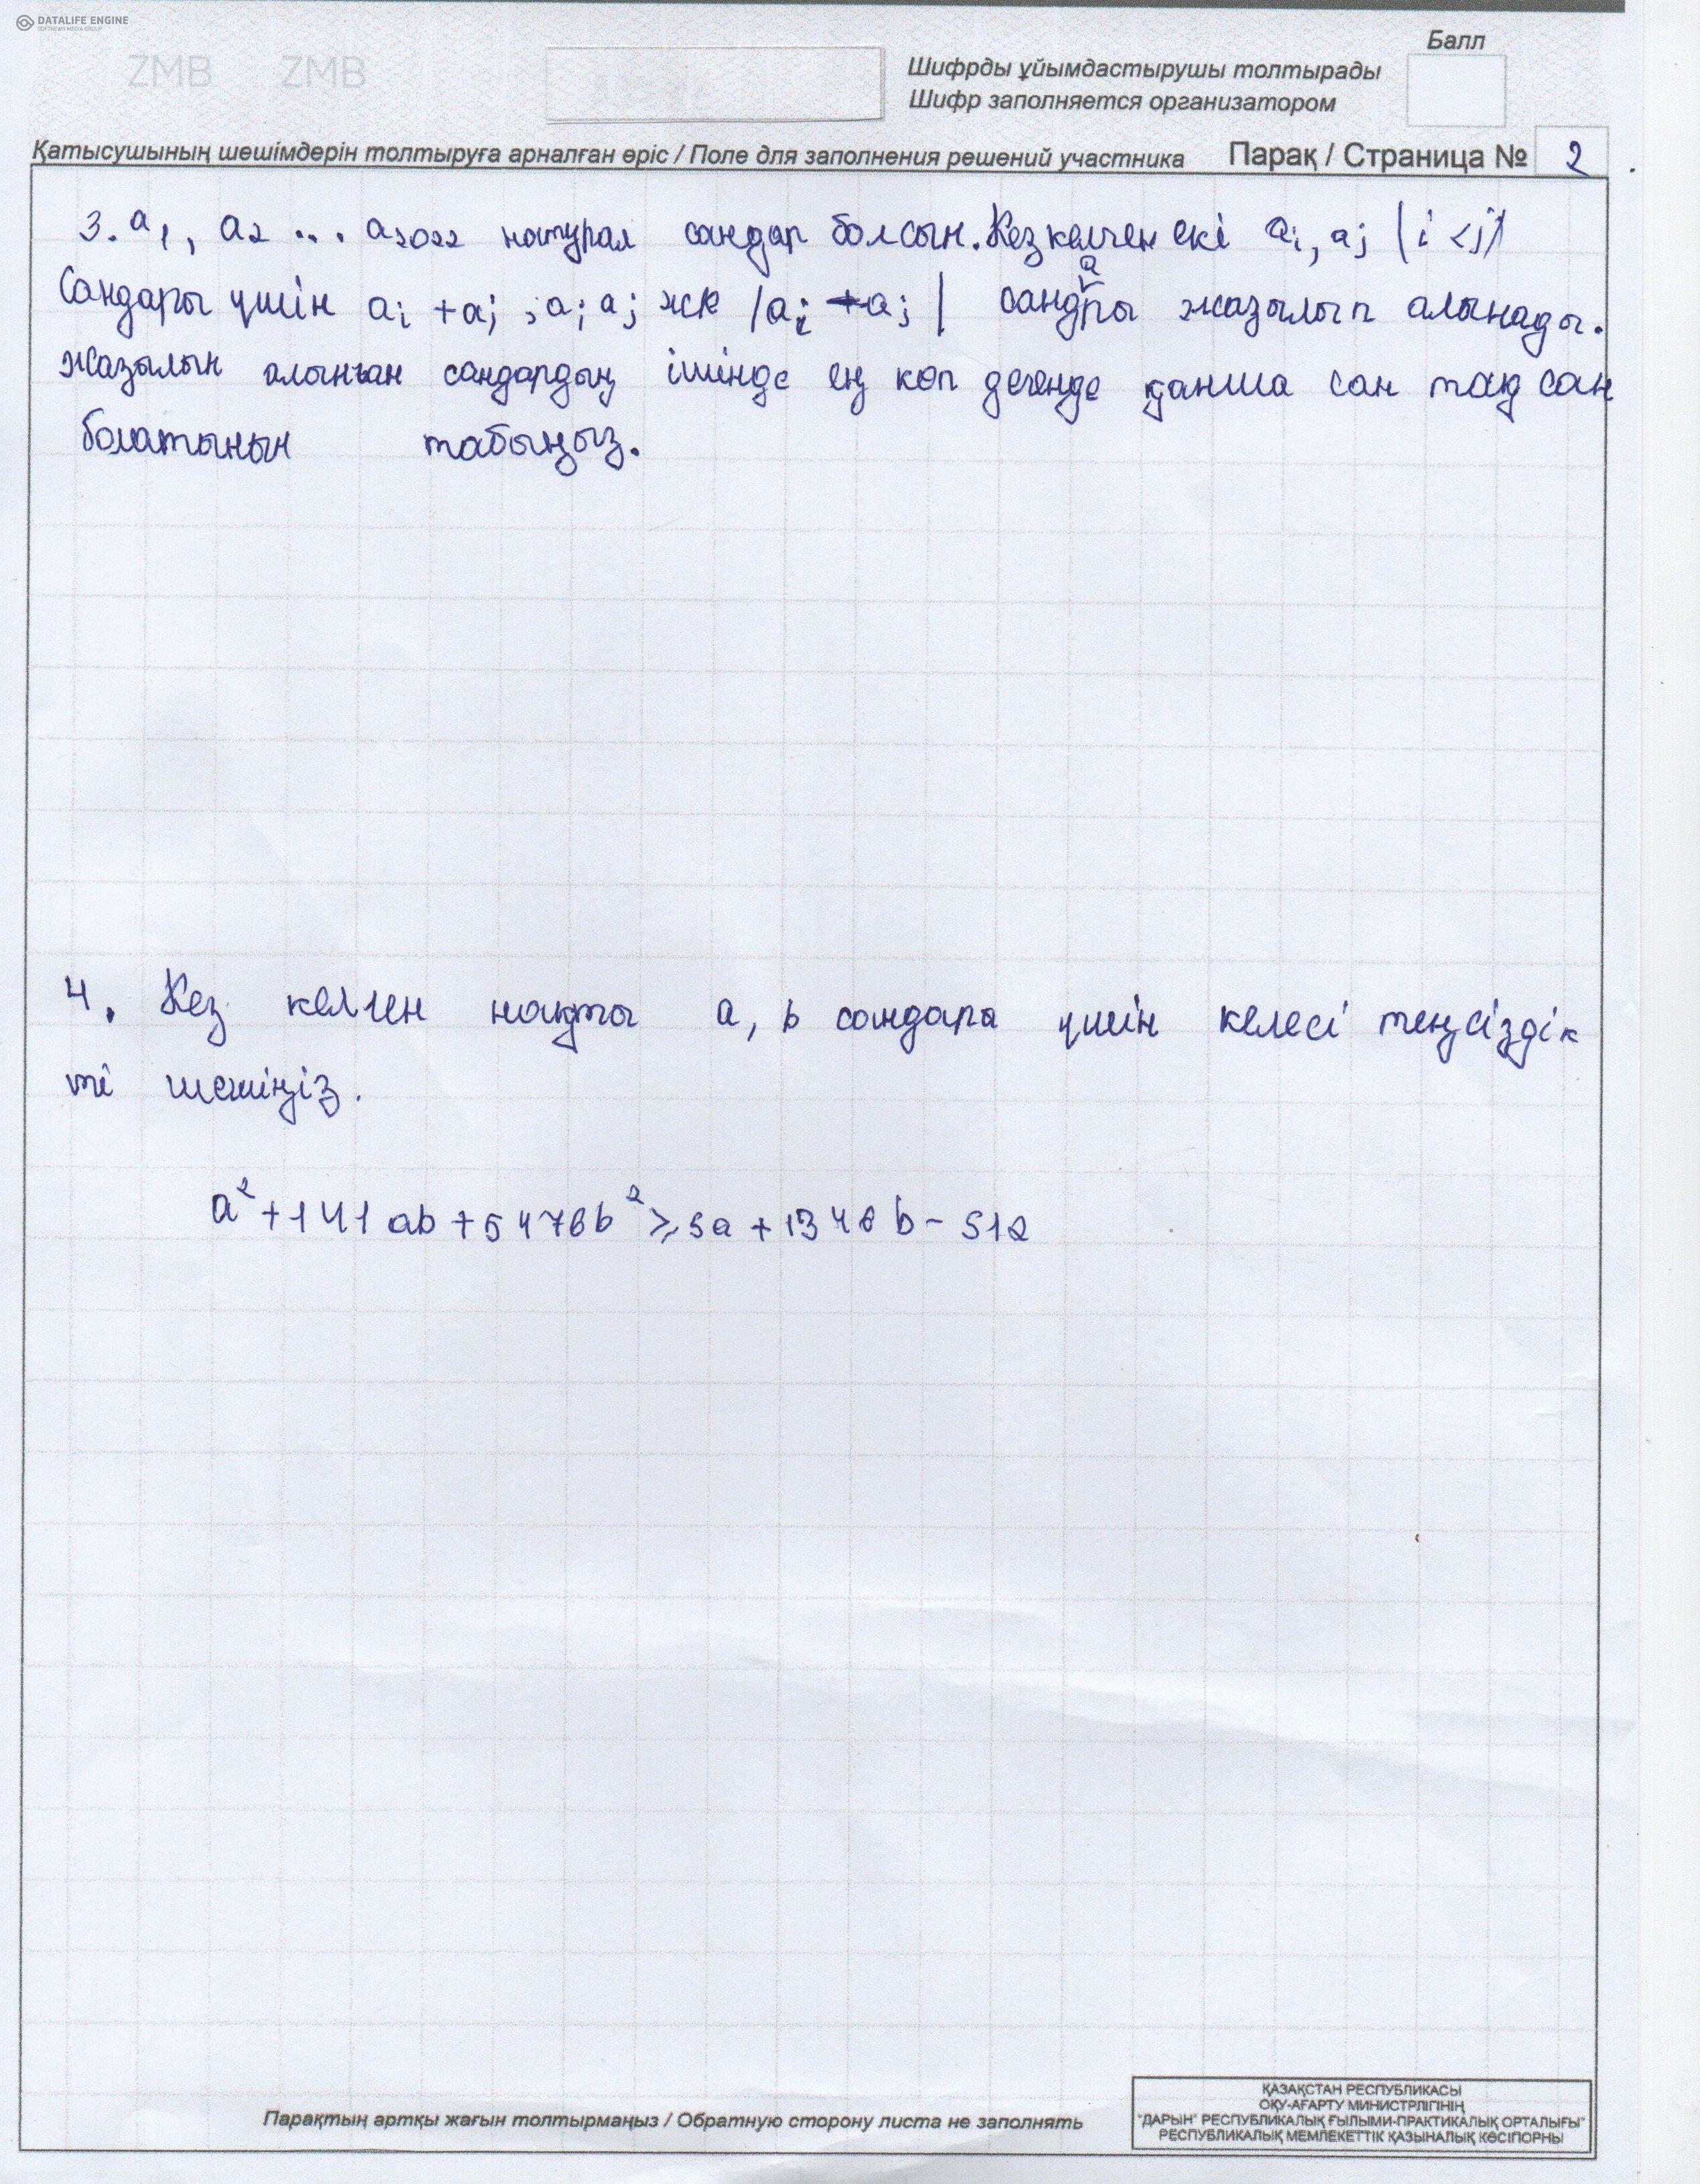 DATALIFE ENGINE
SOFTNEWS MEDIA GROUP
ZMB ZMB
Балл
Шифрды ұйымдастырушы толтырады
Шифр заполняется организатором
Қатысушының шешімдерін толтыруға арналған өріс / Поле для заполнения решений участника Парақ / Страница № 2
3. a₁, a₂ ... a₂₀₂₂ натурал сандар болсын. Кез келген екі aᵢ, aⱼ (i < j)
Сандары үшін aᵢ + aⱼ ; aᵢ aⱼ жк |aᵢ - aⱼ| сандары жазылып алынады.
Жазылын алынған сандардың ішінде ең көп дегенде қанша сан тақ сан
болатынын табыңыз.
4. Кез келген нақты a, b сандары үшін келесі теңсіздік
ті шешіңіз.
a² + 141ab + 5476b² ≥ 5a + 1346b - 512
Парақтың артқы жағын толтырмаңыз / Обратную сторону листа не заполнять
ҚАЗАҚСТАН РЕСПУБЛИКАСЫ
ОҚУ-АҒАРТУ МИНИСТРЛІГІНІҢ
"ДАРЫН" РЕСПУБЛИКАЛЫҚ ҒЫЛЫМИ-ПРАКТИКАЛЫҚ ОРТАЛЫҒЫ"
РЕСПУБЛИКАЛЫҚ МЕМЛЕКЕТТІК ҚАЗЫНАЛЫҚ КӘСІПОРНЫ